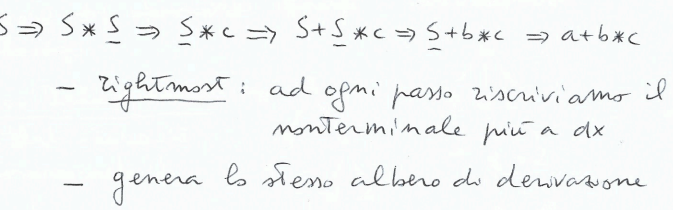 S ⇒ S * S ⇒ S * c ⇒ S + S * c ⇒ S + b * c ⇒ a + b * c
– rightmost : ad ogni passo riscriviamo il
nonterminale più a dx
– genera lo stesso albero di derivazione